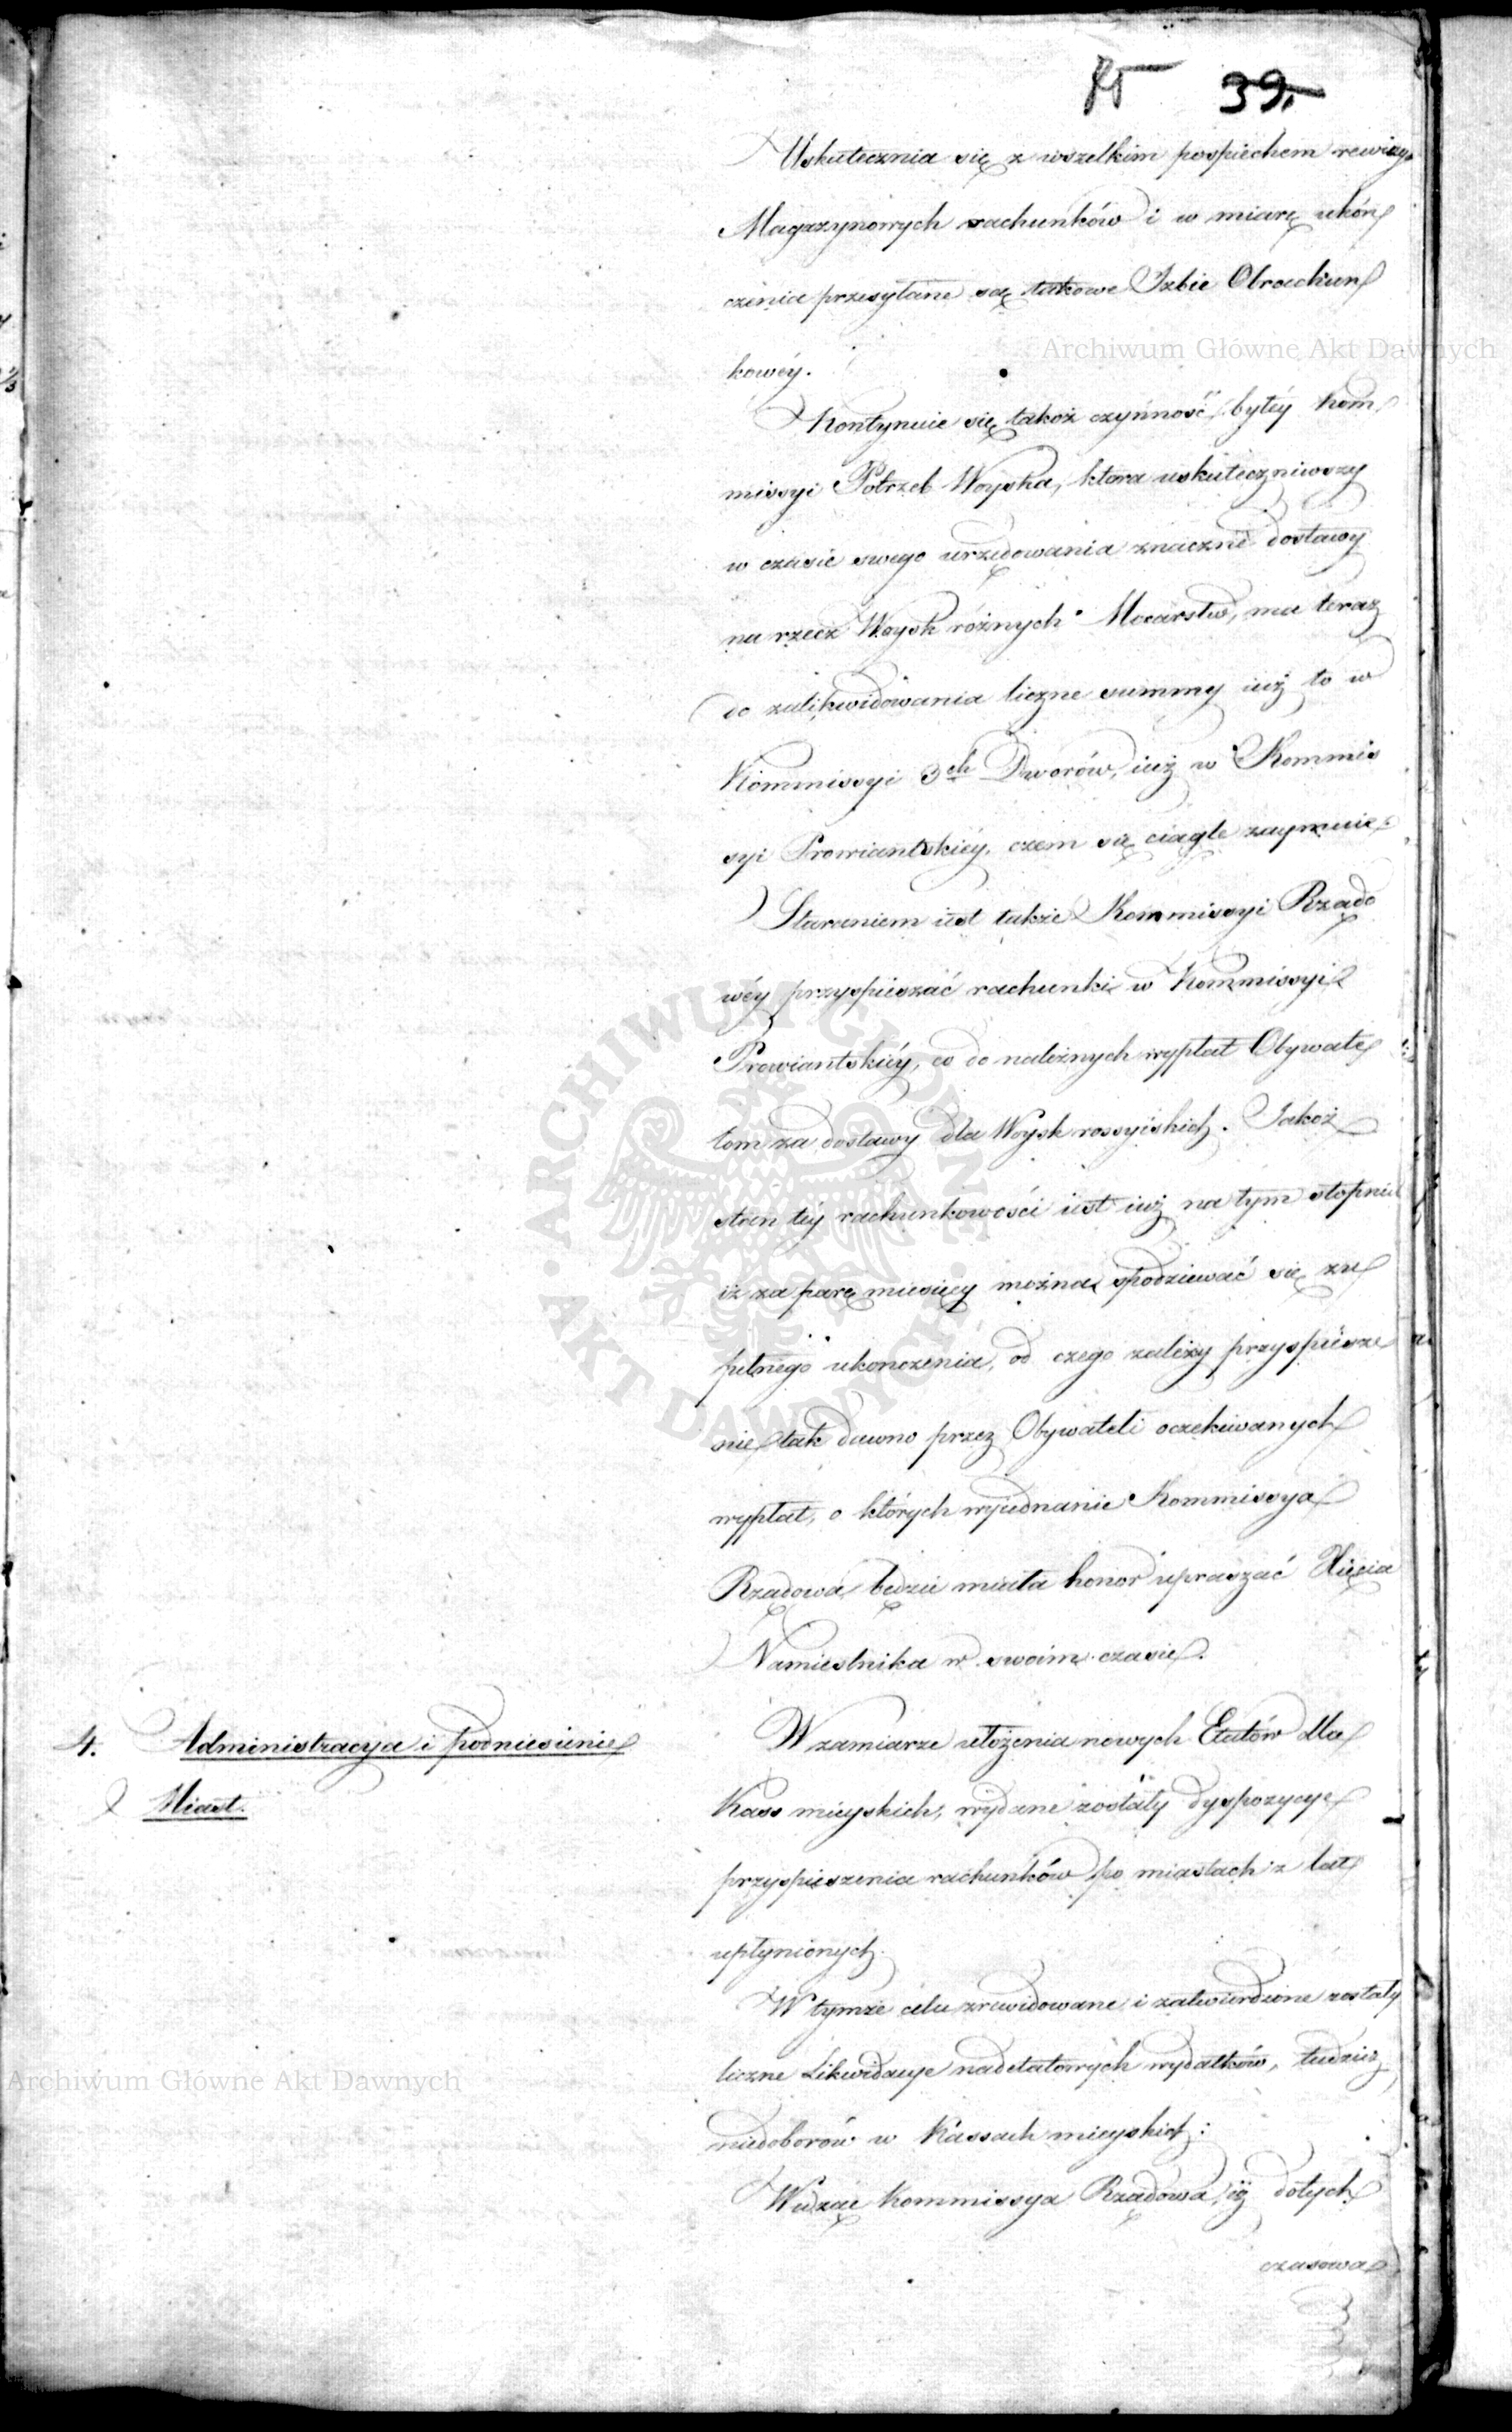 39.
Uskutecznia się z wszelkim pospiechem rewizya
Magazynowych rachunków i w miarę ukoń
czenia przesyłane są takowe Izbie Obrachun
kowéy.
Archiwum Główne Akt Dawnych
Kontynuie się takoż czynność byłéy Kom
missyi Potrzeb Woyska, która uskuteczniwszy
w czasie swego urzędowania znaczne dostawy
na rzecz Woysk różnych Mocarstw, ma teraz
do zalikwidowania liczne summy iuż to w
Kommissyi 3ch Dworów, iuż w Kommis
syi Prowiantskiéy, czem się ciągle zaymuie.
Staraniem iest także Kommissyi Rządo
wéy przyspieszać rachunki w Kommissyi
Prowiantskiéy, co do należnych wypłat Obywate
lom za dostawy dla Woysk rossyiskich. Jakoż
stan téy rachunkowości iest iuż na tym stopniu
iż za parę miesięcy można spodziewać się zu
pełnego ukończenia, od czego zależy przyspiesze
nie tak dawno przez Obywateli oczekiwanych
wypłat, o których wyiednanie Kommissya
Rządowa będzie miała honor upraszać Xięcia
Namiestnika w swoim czasie.
ARCHIWUM GŁÓWNE · AKT DAWNYCH ·
4. Administracya i podniesienie
Miast.
W zamiarze ułożenia nowych Etatów dla
Kass mieyskich, wydane zostały dyspozycye
przyspieszenia rachunków po miastach z lat
upłynionych.
W tymże celu zrewidowane i zatwierdzone zostały
liczne Likwidacye nadetatowych wydatków, tudzież
niedoborów w Kassach mieyskich:
Archiwum Główne Akt Dawnych
Widząc Kommissya Rządowa, iż dotych
czasowa